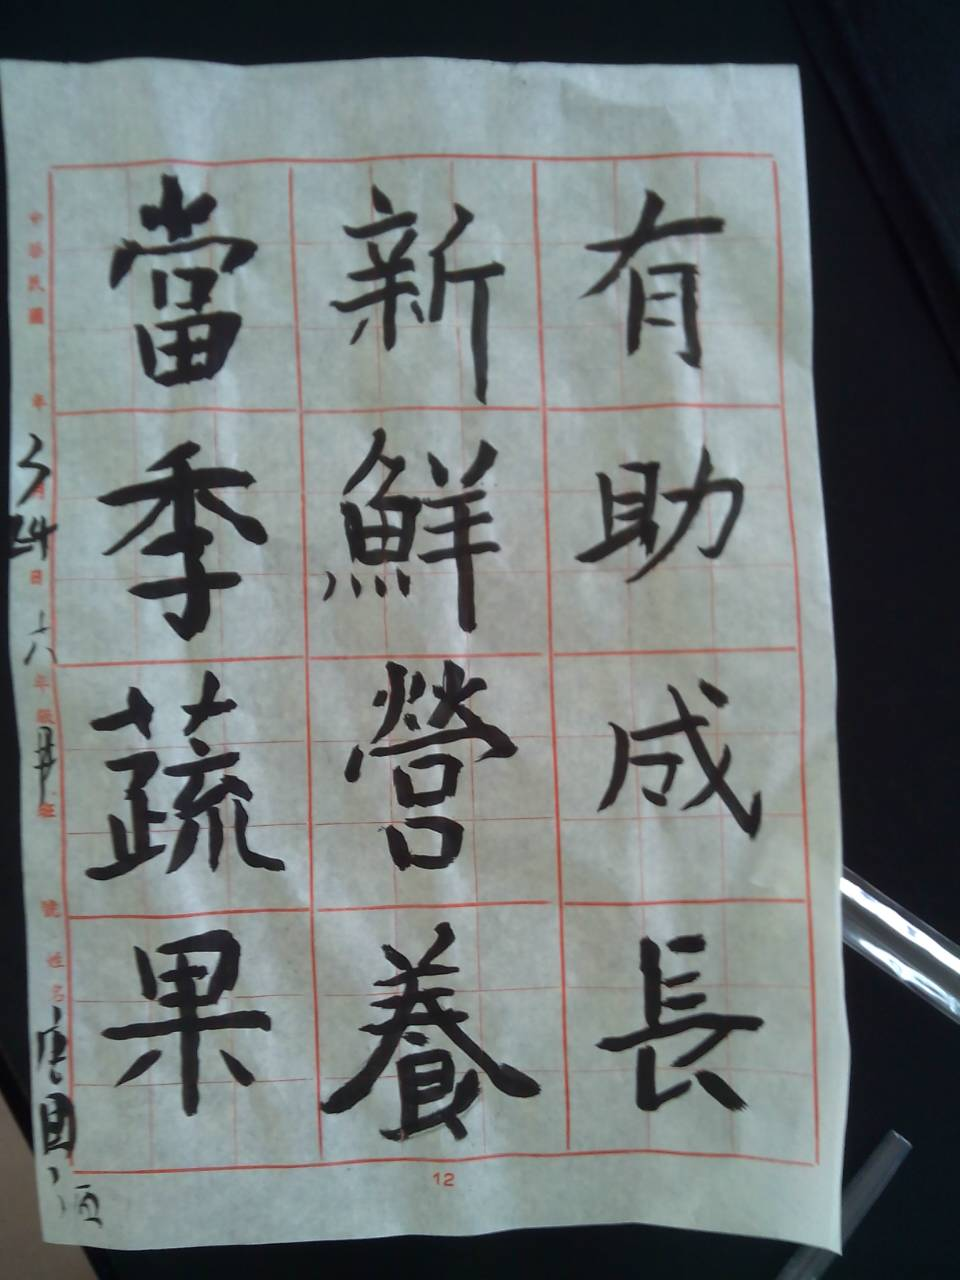 有助成長
新鮮營養
當季蔬果
中華民國 年 月24日 六年級 班 號 姓名唐國
12